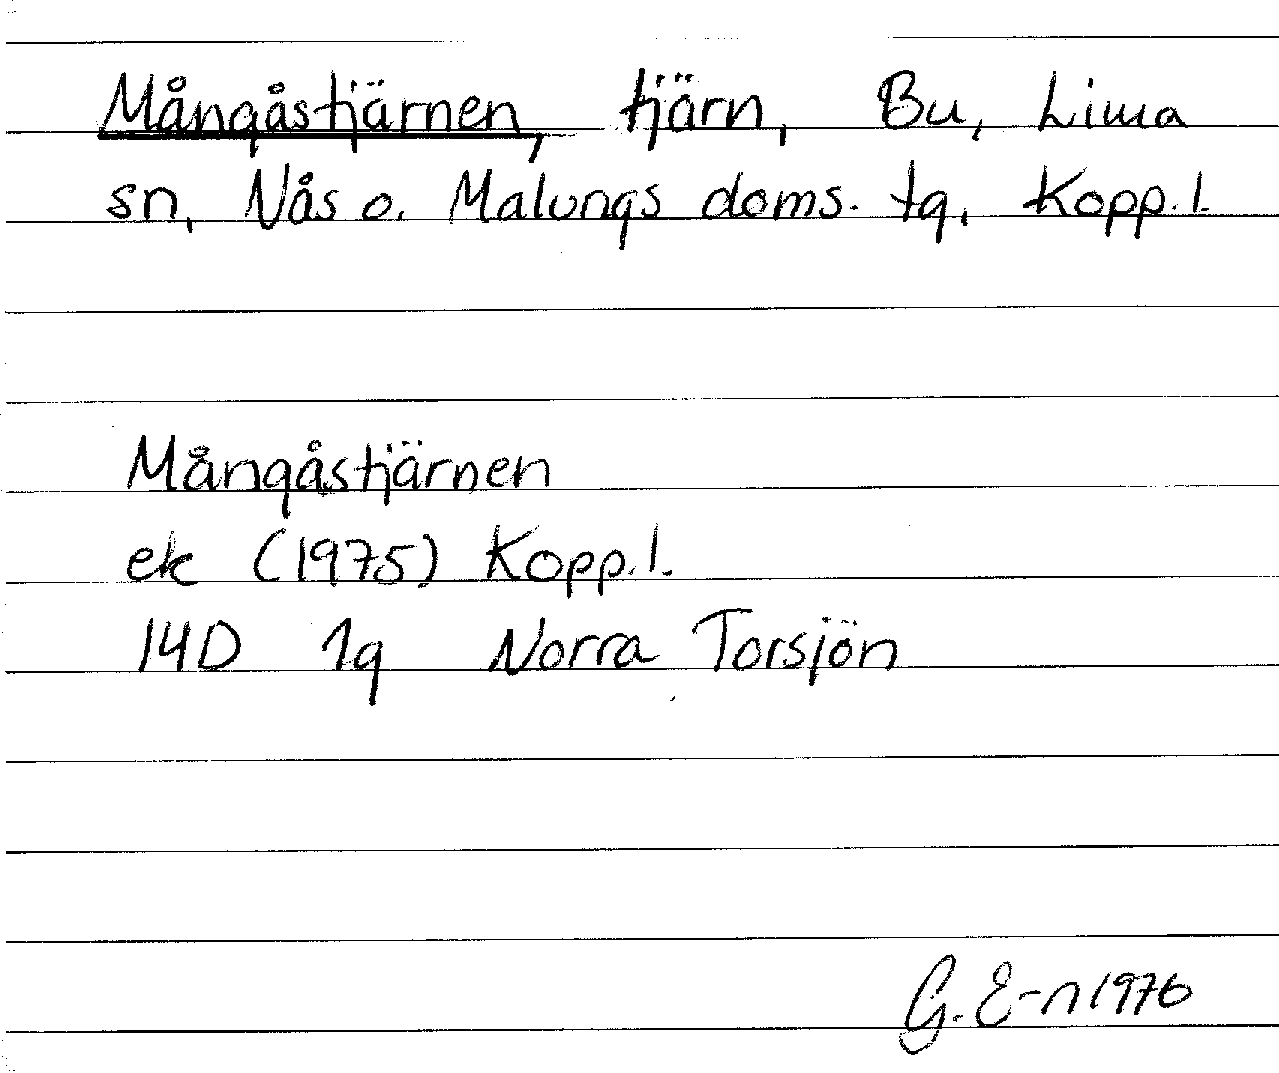 Mångåstjärnen, tjärn, Bu, Lima
sn, Nås o. Malungs doms. tg, Kopp. l.
Mångåstjärnen
ek (1975) Kopp. l.
14D 1g Norra Torsjön
G. E-n 1976